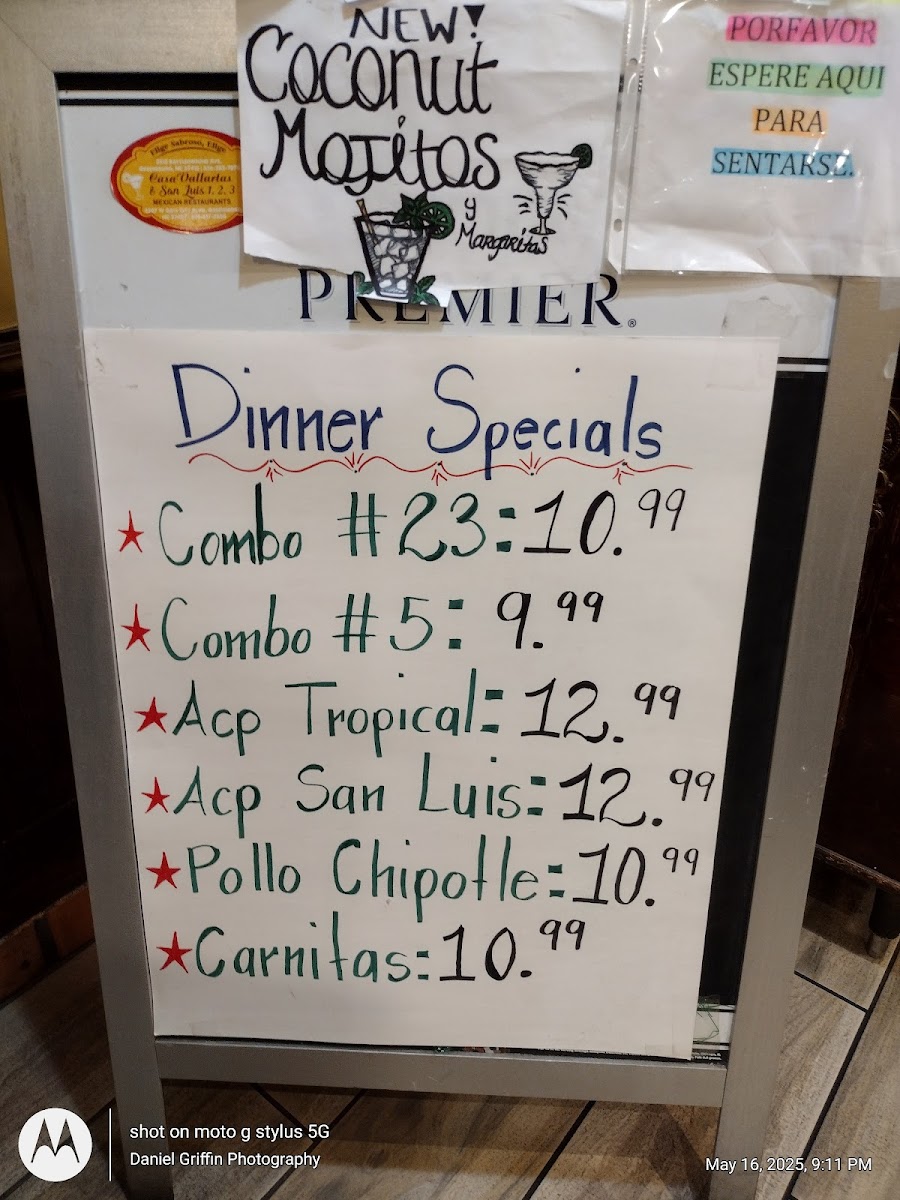 NEW!
Coconut
Mojitos
y
Margaritas
PORFAVOR
ESPERE AQUI
PARA
SENTARSE.
Elige Sabroso, Elige
Casa Vallartas
& San Luis 1, 2, 3
MEXICAN RESTAURANTS
PREMIER®
Dinner Specials
Combo #23: 10.99
Combo #5: 9.99
Acp Tropical: 12.99
Acp San Luis: 12.99
Pollo Chipotle: 10.99
Carnitas: 10.99
shot on moto g stylus 5G
Daniel Griffin Photography
May 16, 2025, 9:11 PM